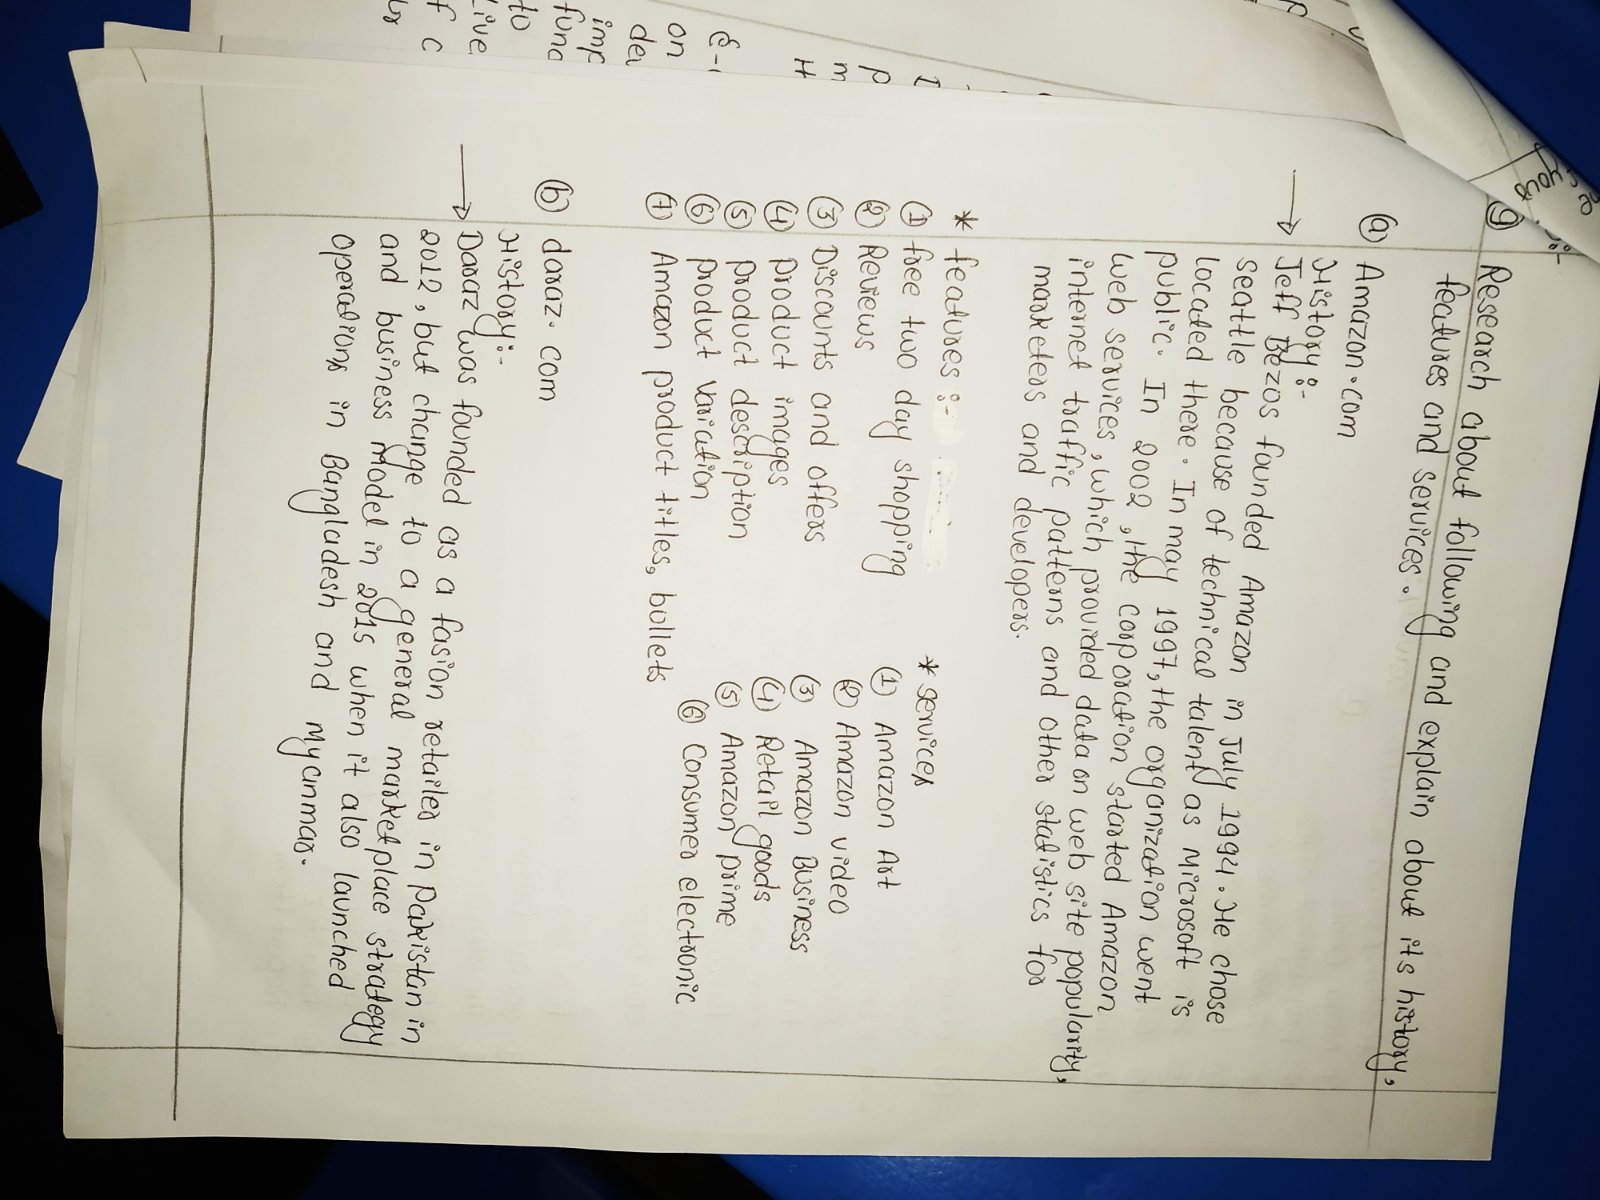 9 Research about following and explain about its history,
features and services.
a Amazon.com
History :-
→ Jeff Bezos founded Amazon in July 1994. He chose
seattle because of technical talent as Microsoft is
located there. In may 1997, the organization went
public. In 2002, the corporation started Amazon
web services, which provided data on web site popularity,
internet traffic patterns and other statistics for
marketers and developers.
* features :-
1 free two day shopping
2 Reviews
3 Discounts and offers
4 product images
5 product description
6 product variation
7 Amazon product titles, bullets
* services
1 Amazon Art
2 Amazon video
3 Amazon Business
4 Retail goods
5 Amazon prime
6 Consumer electronic
b daraz. com
History:-
→ Daraz was founded as a fasion retailer in Pakistan in
2012, but change to a general marketplace strategy
and business model in 2015 when it also launched
operations in Bangladesh and Myanmar.
your
E-
on
dev
imp
func
to
Live
f c